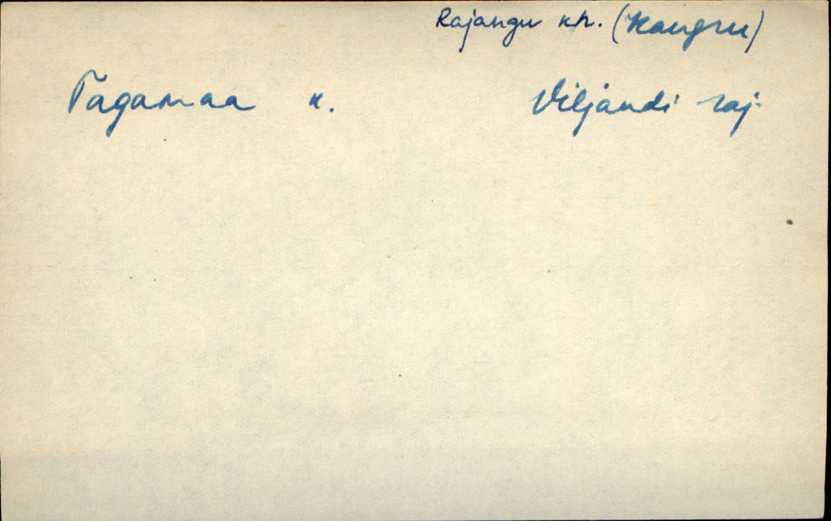 Rajangu kn. (Kangru)
Tagamaa k. Viljandi raj.